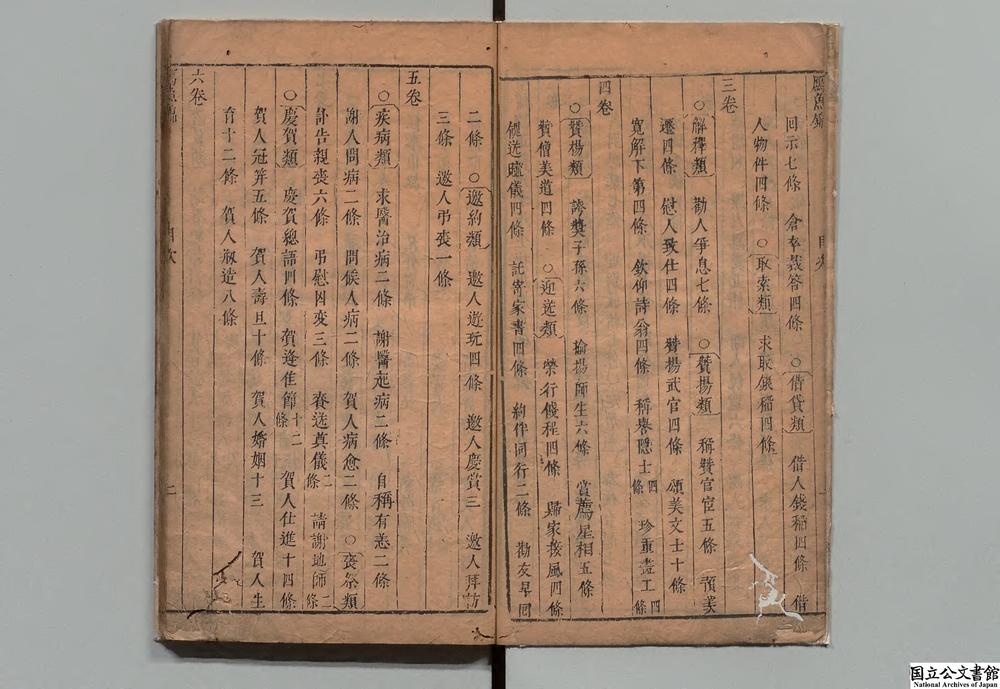 回示七條　倉卒裁答四條　○借貸類　借人錢稲四條　借
人物件四條　○取索類　求取銀稲四條
三卷
○解釋類　勸人爭息七條　○賛揚類　稱賛官宦五條　頌美
遷四條　慰人致仕四條　賛揚武官四條　頌美文士十條
寬解下第四條　欽仰詩翁四條　稱譽隱士四條　珍重畫工四條
四卷
○賛揚類　誇奬子孫六條　揄揚師生六條　賞薦星相五條
賛僧美道四條　○迎送類　榮行餞程四條　歸家接風四條
餽送贐儀四條　託寄家書四條　約伴同行二條　勸友早回
二條　○邀約類　邀人遊玩四條　邀人慶賞三　邀人拜訪
三條　邀人弔喪一條
五卷
○疾病類　求醫治病二條　謝醫起病二條　自稱有恙二條
謝人問病二條　問候人病二條　賀人病愈二條　○喪祭類
訃告親喪六條　弔慰凶変三條　賫送奠儀二條　請謝地師二條
○慶賀類　慶賀總語四條　賀逢佳節十二條　賀人仕進十四條
賀人冠笄五條　賀人壽旦十條　賀人婚姻十三　賀人生
育十二條　賀人鼎造八條
六卷
目次
二
国立公文書館
National Archives of Japan